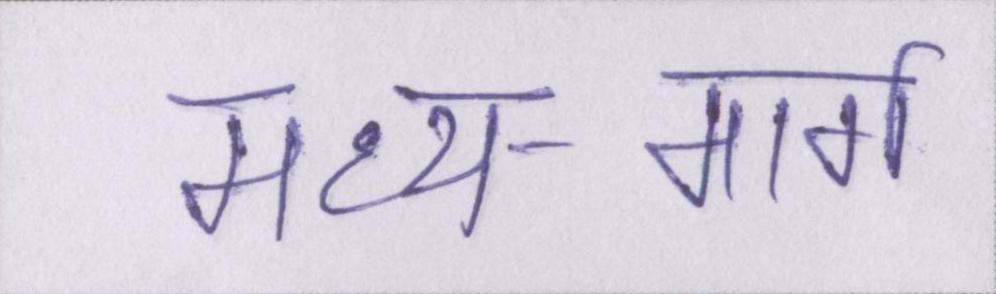 मध्य-मार्ग